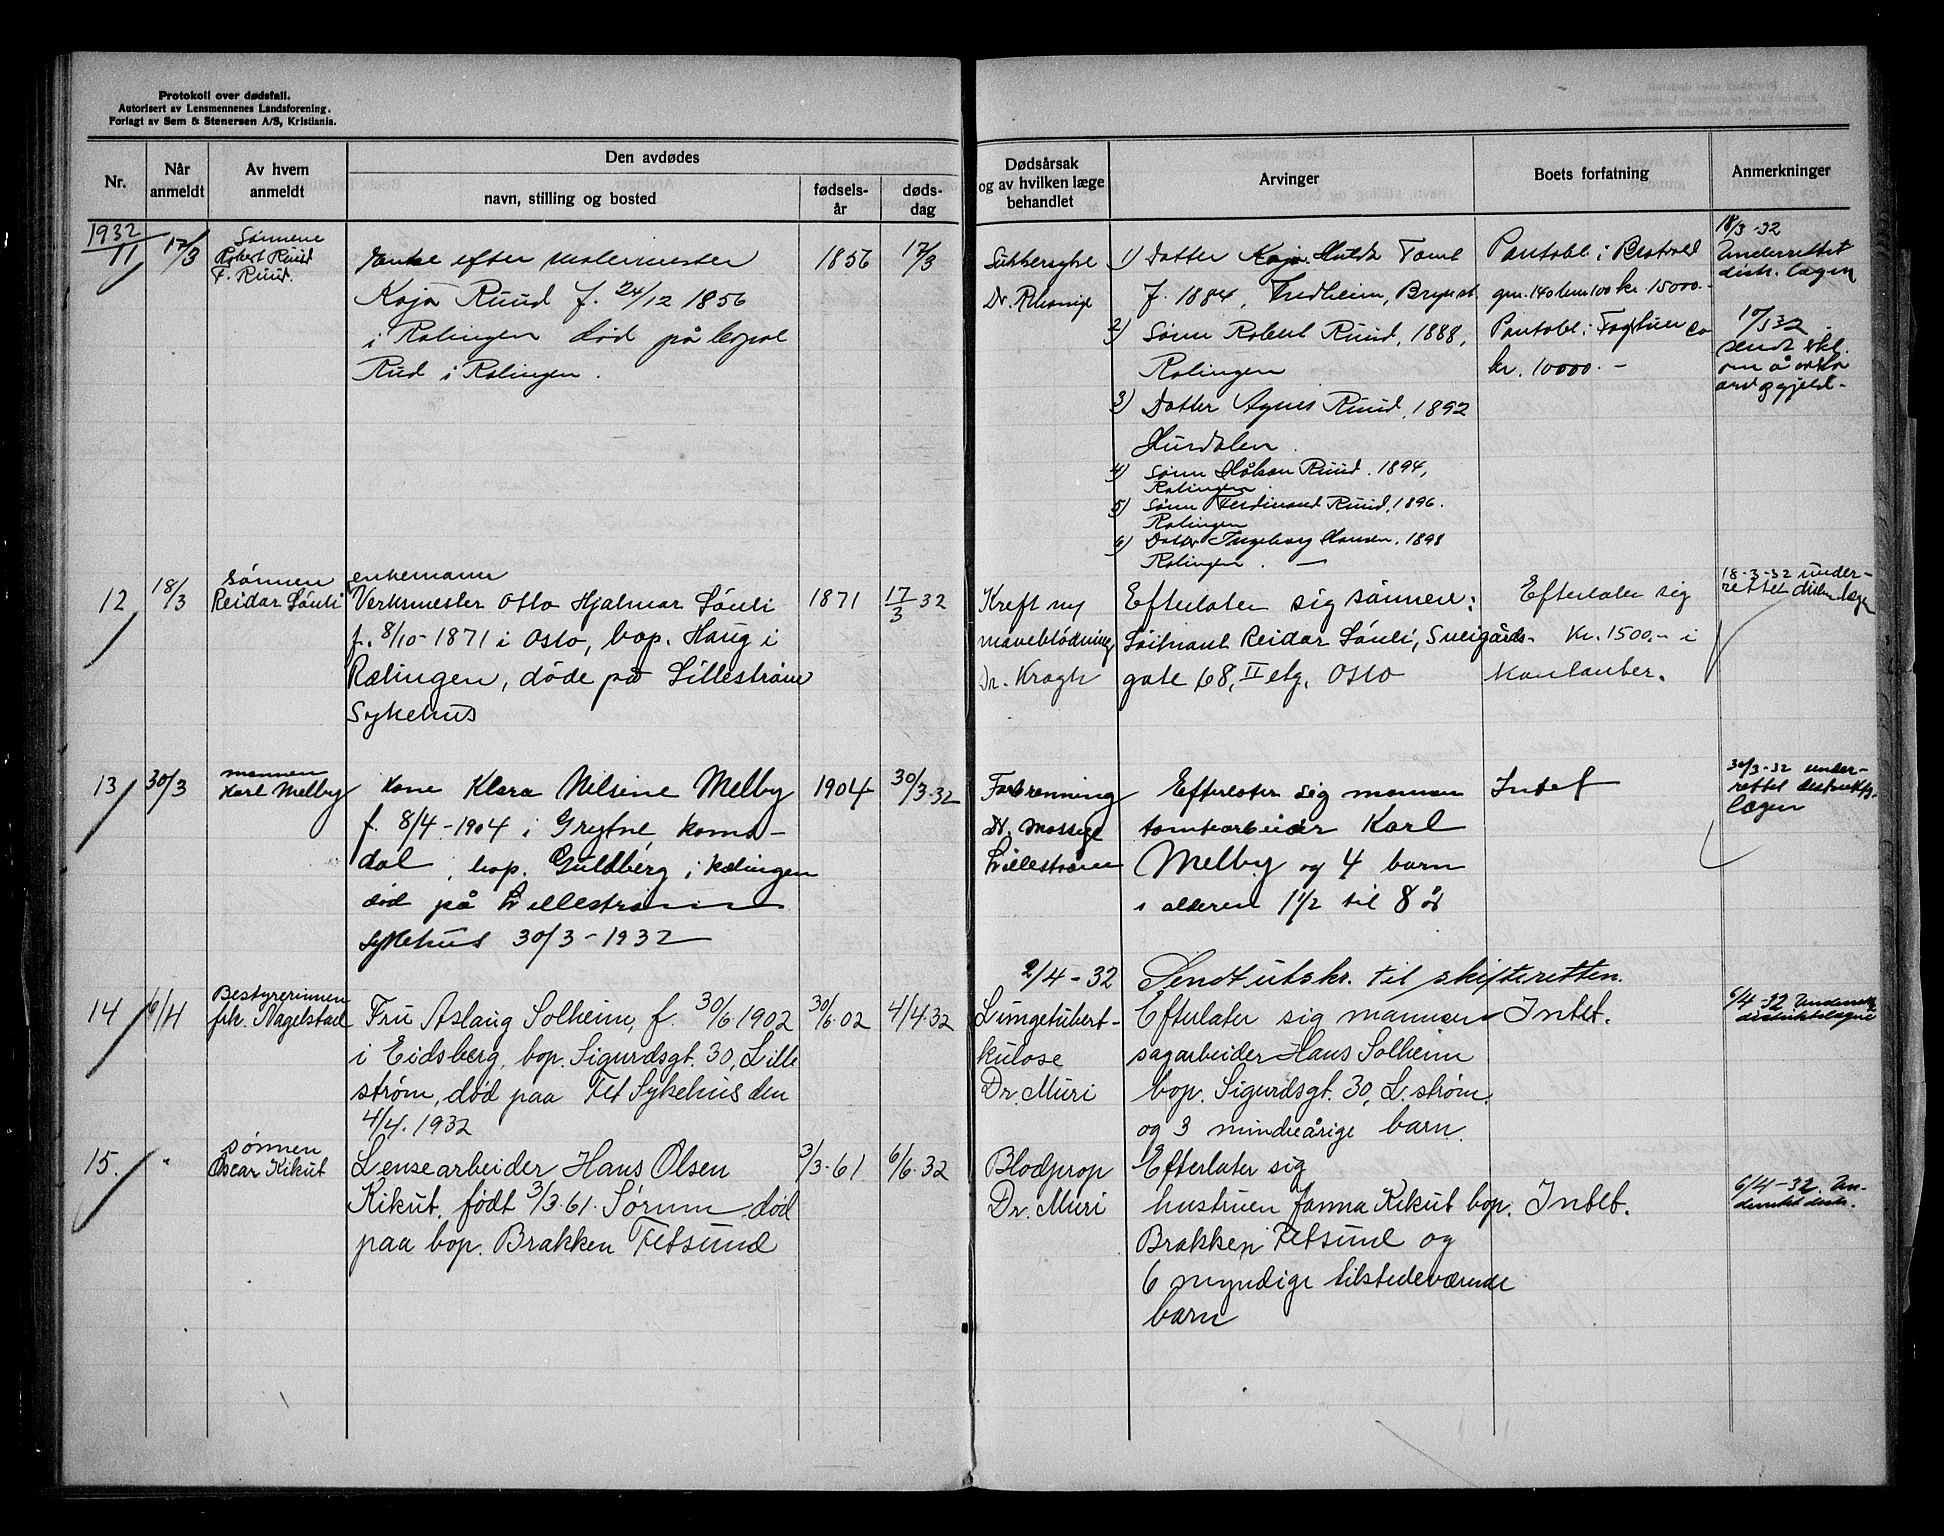 Protokoll over dødsfall.
Autorisert av Lensmennenes Landsforening.
Forlagt av Sem & Stenersen A/S, Kristiania.
Nr.
Når anmeldt
Av hvem anmeldt
Den avdødes
navn, stilling og bosted
fødselsår
dødsdag
Dødsårsak og av hvilken læge behandlet
Arvinger
Boets forfatning
Anmerkninger
1932
11
17/3
Sønnene
Robert Ruud
F. Ruud.
Enke efter malermester
Kaja Ruud f. 24/12 1856
i Rælingen død på bopæl
Rud i Rælingen.
1856
17/3
Sukkersyke
Dr.
1) Datter Kaja Hulda
f. 1884, Fredheim,
2) Sønn Robert Ruud, 1888,
Rælingen
3) Datter Agnes Ruud, 1892
Hurdalen.
4) Sønn Håkon Ruud. 1894,
Rælingen
5) Sønn Ferdinand Ruud, 1896.
Rælingen
6) Datter Ingeborg Hansen. 1898
Rælingen. —
Pantobl. i
kr. 15000.-
Pantobl. i
kr. 10000.-
18/3-32
Underrettet
distr. lægen
sendt skl.
om å
arv og gjeld-
12
18/3
sønnen
Reidar Sønli
enkemann
Verksmester Otto Hjalmar Sønli
f. 8/10-1871 i Oslo, bop. Haug i
Rælingen, døde på Lillestrøm
Sykehus
1871
17/3 32
Kreft og
maveblødning
Dr. Kragh
Efterlater sig sønnen:
Løitnant Reidar Sønli, Sveigårds-
gate 68, II etg, Oslo
Efterlater sig
Kr. 1500,- i
kontanter.
18-3-32 under-
rettet distr. læge
13
30/3
mannen
Karl Melby
Kone Klara Nilsine Melby
f. 8/4-1904 i Grytne
dal, bop. Guldberg i Rælingen
død på Lillestrøm
sykehus 30/3-1932
1904
30/3-32
Forbrenning
Dr. Mossige
Lillestrøm
Efterlater sig mannen
tomtearbeider Karl
Melby og 4 barn
i alderen 1½ til 8 år
Intet
30/3-32 under-
rettet distriktslg.
lægen
2/4-32 Sendt utskr. til skifteretten.
14
6/4
Bestyrerinnen
frk. Nagelstad
Fru Aslaug Solheim, f. 30/6 1902
i Eidsberg, bop. Sigurdsgt. 30, Lille
strøm, død paa Fet Sykehus den
4/4. 1932
30/6.02
4/4.32
Lungetubert-
kulose
Dr. Muri
Efterlater sig mannen
sagarbeider Hans Solheim
bop. Sigurdsgt. 30, L. strøm.
og 3 mindreårige barn.
Intet.
6/4-32 Underrettet
distriktslægen
15.
"
sønnen
Oscar Kikut
Lensearbeider Hans Olsen
Kikut. født 3/3.61. Sørum død
paa bop. Brakken Fetsund
3/3.61
6/6.32
Blodprop
Dr. Muri
Efterlater sig
hustruen Janna Kikut bop.
Brakken Fetsund og
6 myndige tilstedeværende
barn
Intet.
6/4-32. Un-
derrettet distr.